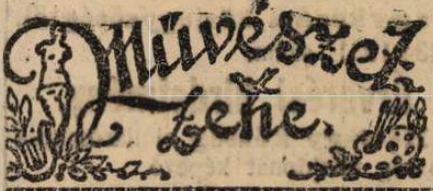 Művészet
zene.